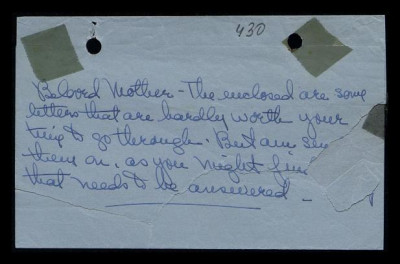 430
Beloved Mother - The enclosed are some
letters that are hardly worth your
to go through. But am
them on, as you might
that needs to be answered -